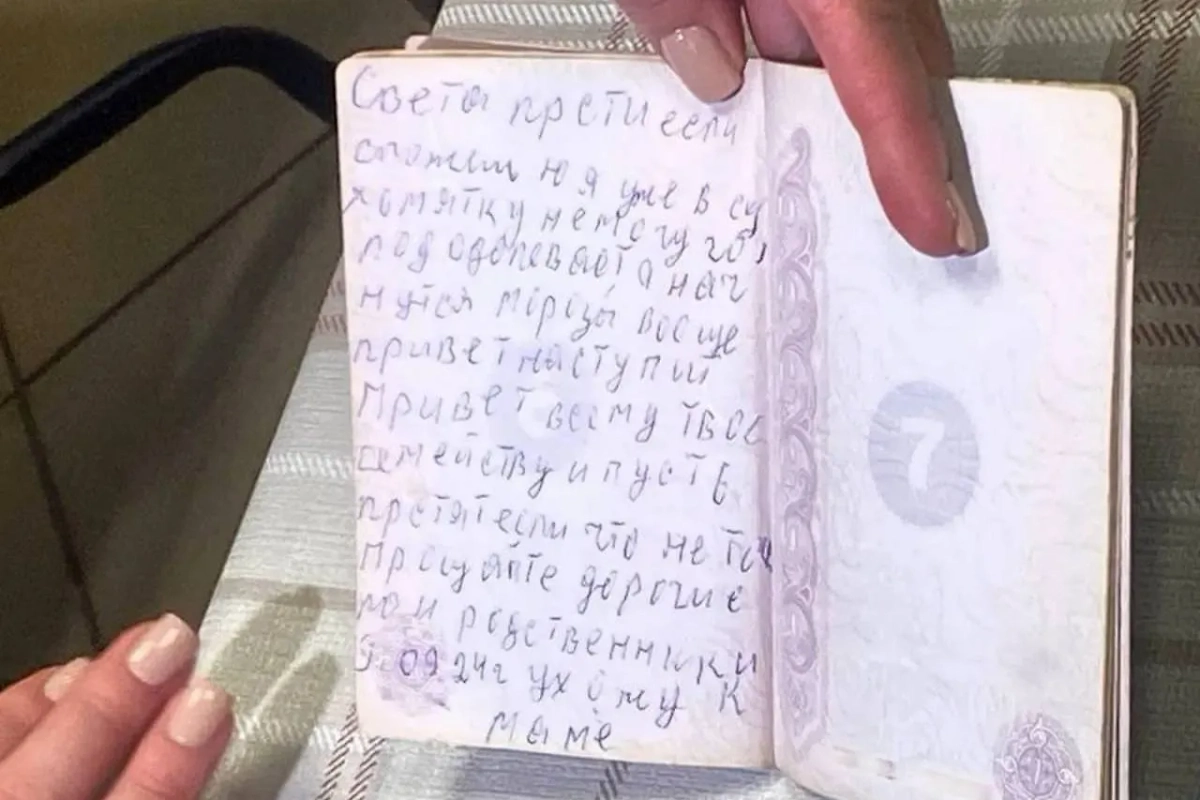 Света прсти если
сможеш ю я уже в су
хомятку немогу го,
лод одолевает а нач
нутся морозы восще
привет наступит
Привет всему твос
семейству и пусть
прстят если что не так
Прощайте дорогие
мои родственники
9.09.24г ухожу к
маме
7